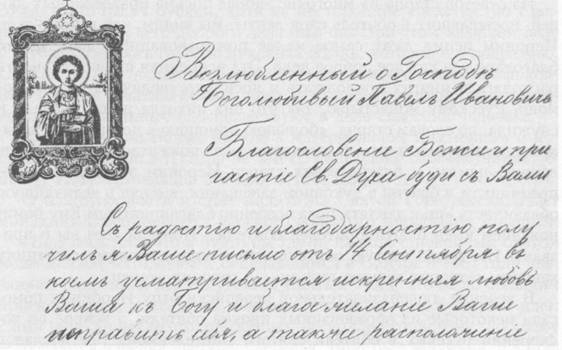 Возлюбленный о Господѣ
Боголюбивый Павелъ Ивановичъ
Благословеніе Божіе и при
частіе Св. Духа буди съ Вами
Съ радостію и благодарностію полу
чилъ я Ваше письмо отъ 14 Сентября въ
коемъ усматривается искренняя любовь
Ваша къ Богу и благое желаніе Ваше
исправить себя, а также расположеніе